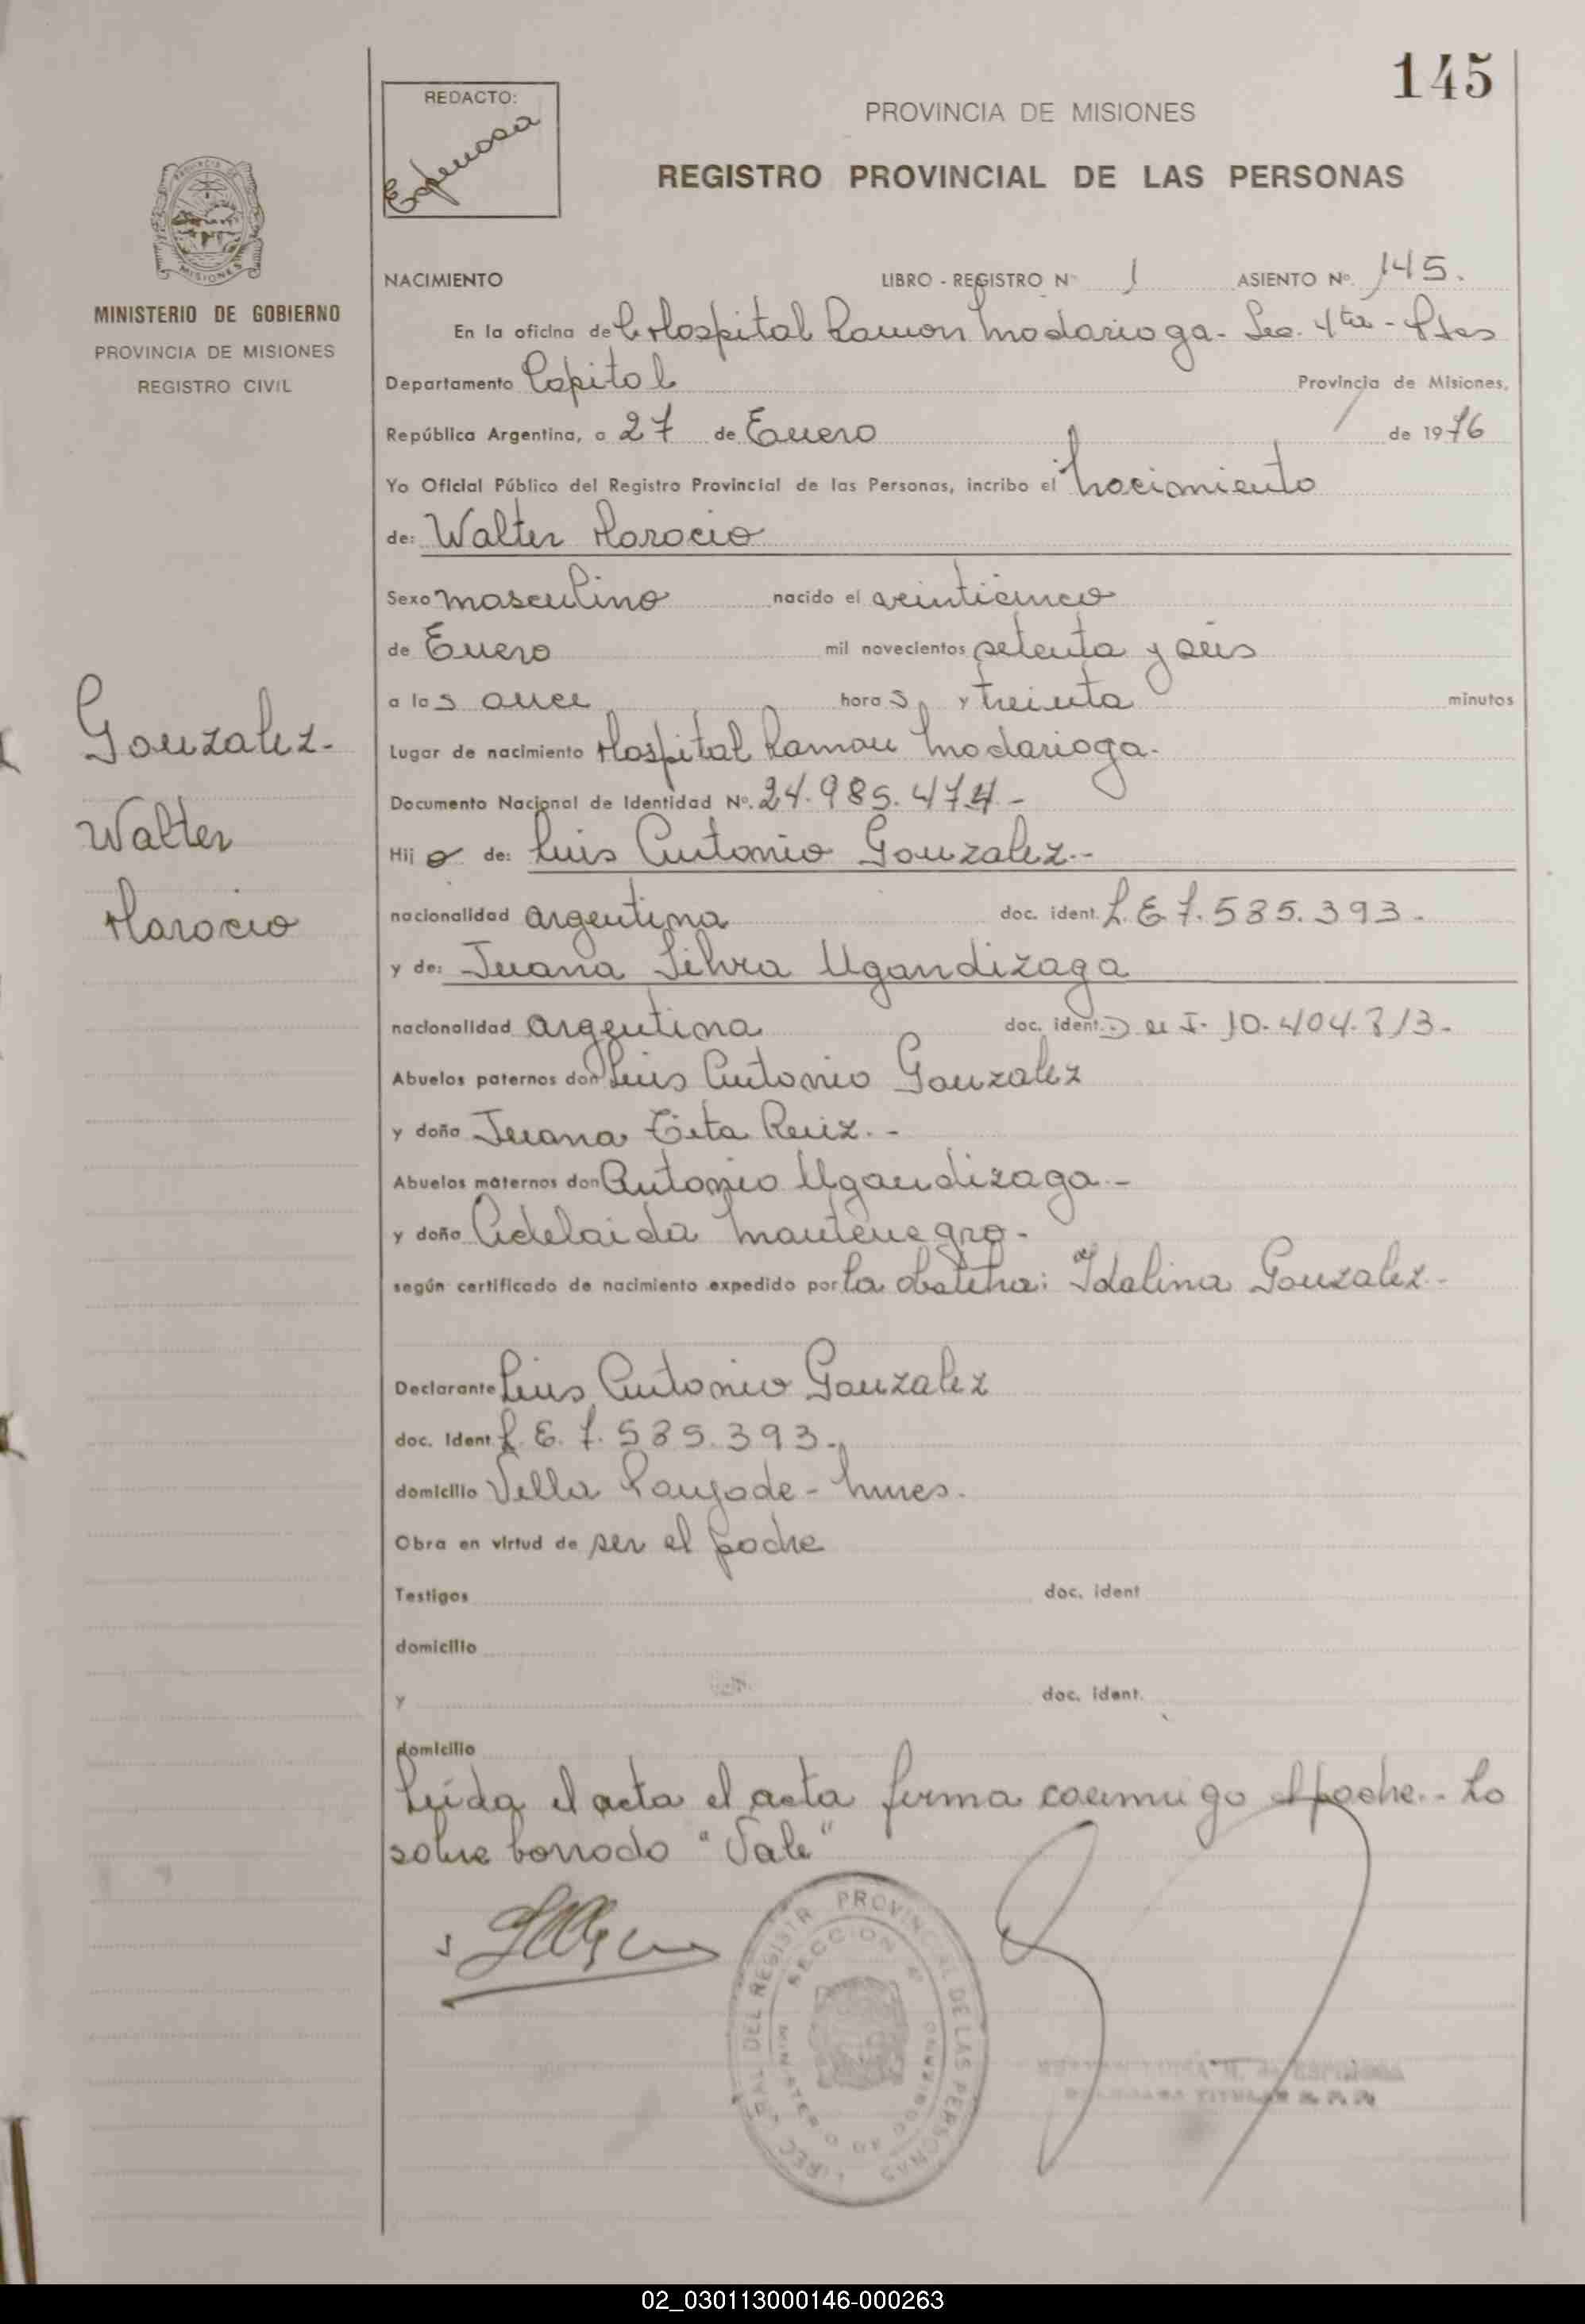 145
REDACTO:
Espinosa
PROVINCIA DE MISIONES
REGISTRO PROVINCIAL DE LAS PERSONAS
PROVINCIA DE
MISIONES
MINISTERIO DE GOBIERNO
PROVINCIA DE MISIONES
REGISTRO CIVIL
NACIMIENTO LIBRO - REGISTRO Nº 1 ASIENTO Nº. 145.
En la oficina de Hospital Ramon Madariaga - Sec. 4ta - Pdas
Departamento Capital Provincia de Misiones,
República Argentina, a 27 de Enero de 1976
Yo Oficial Público del Registro Provincial de las Personas, incribo el nacimiento
de: Walter Horocio
Sexo masculino nacido el veinticinco
de Enero mil novecientos setenta y seis
a las once horas y treinta minutos
Lugar de nacimiento Hospital Ramon Madariaga.
Documento Nacional de Identidad Nº. 24.985.474 -
Hijo de: Luis Antonio Gonzalez.-
nacionalidad argentina doc. ident. L.E 7.585.393.
y de: Juana Silva Ugandizaga
nacionalidad argentina doc. ident. D n I. 10.404.813.
Abuelos paternos don Luis Antonio Gonzalez
y doña Juana Tita Ruiz.-
Abuelos maternos don Antonio Ugandizaga.-
y doña Adelaida Montenegro.
según certificado de nacimiento expedido por la obstetra: Idalina Gonzalez.-
Declarante Luis Antonio Gonzalez
doc. Ident. L.E. 7.585.393.
domicilio Villa Lanjade -
Obra en virtud de ser el padre
Testigos doc. ident
domicilio
y doc. ident.
domicilio
Leida el acta el acta firma conmigo el padre.- Lo
sobre borrado "Vale"
Gonzalez.
Walter
Horacio
PROVINCIAL DE LAS PERSONAS
SECCION 4ª
02_030113000146-000263